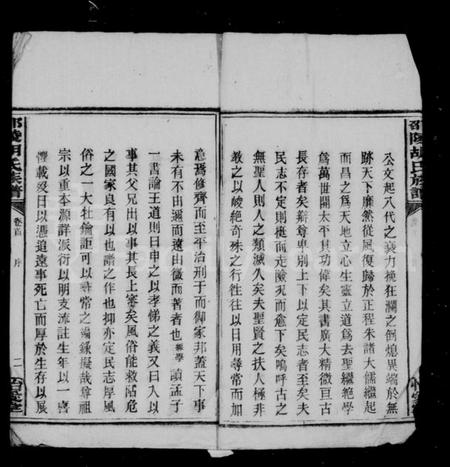 邵陵胡氏族譜
公文起八代之衰力挽狂瀾之倒熄異端於無
跡天下靡然從風復歸於正程朱諸大儒繼起
而昌之為天地立心生靈立道為去聖繼絶學
為萬世開太平其功偉矣其書廣大精微亘古
長存者矣辯尊卑別上下以定民志者至矣夫
民志不定則梃而走險現而愈下矣嗚呼古之
無聖人則人之類滅久矣夫聖賢之扶人極非
教之以峻絶奇殊之行徃徃以日用尋常而加
意焉修齊而至平治刑于而御家邦蓋天下事
未有不由邇而遠由微而著者也 學 讀孟子
一書論王道則曰申之以孝悌之義又曰入以
事其父兄出以事其長上審矣風俗能救怗危
之國家良有以也譜之作也抑亦定民志厚風
俗之一大牡鑰詎可以尋常之編錄擬哉尊祖
宗以重本源詳派衍以明支流註生年以一喜
懼載歿日以慿追遠事死亡而厚於生存以展
邵陵胡氏族譜
卷首
序
二